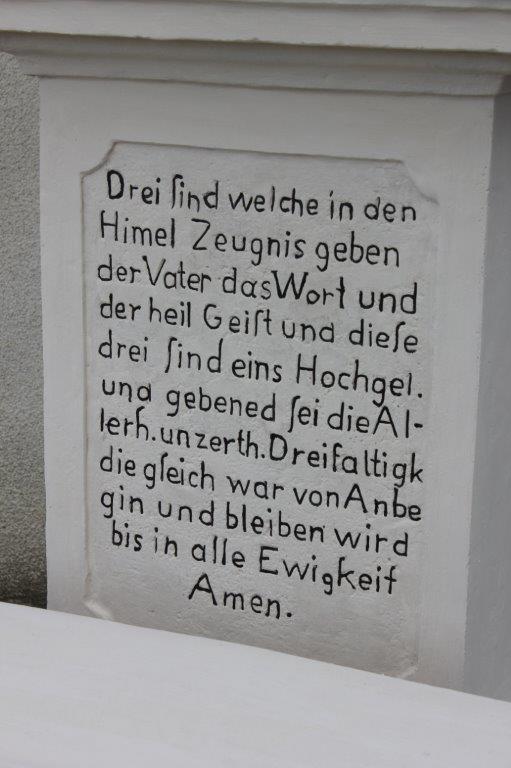 Drei ſind welche in den
Himel Zeugnis geben
der Vater das Wort und
der heil Geiſt und dieſe
drei ſind eins Hochgel.
und gebened ſei die Al-
lerh. unzerth. Dreifaltigk
die gleich war von Anbe
gin und bleiben wird
bis in alle Ewigkeit
Amen.